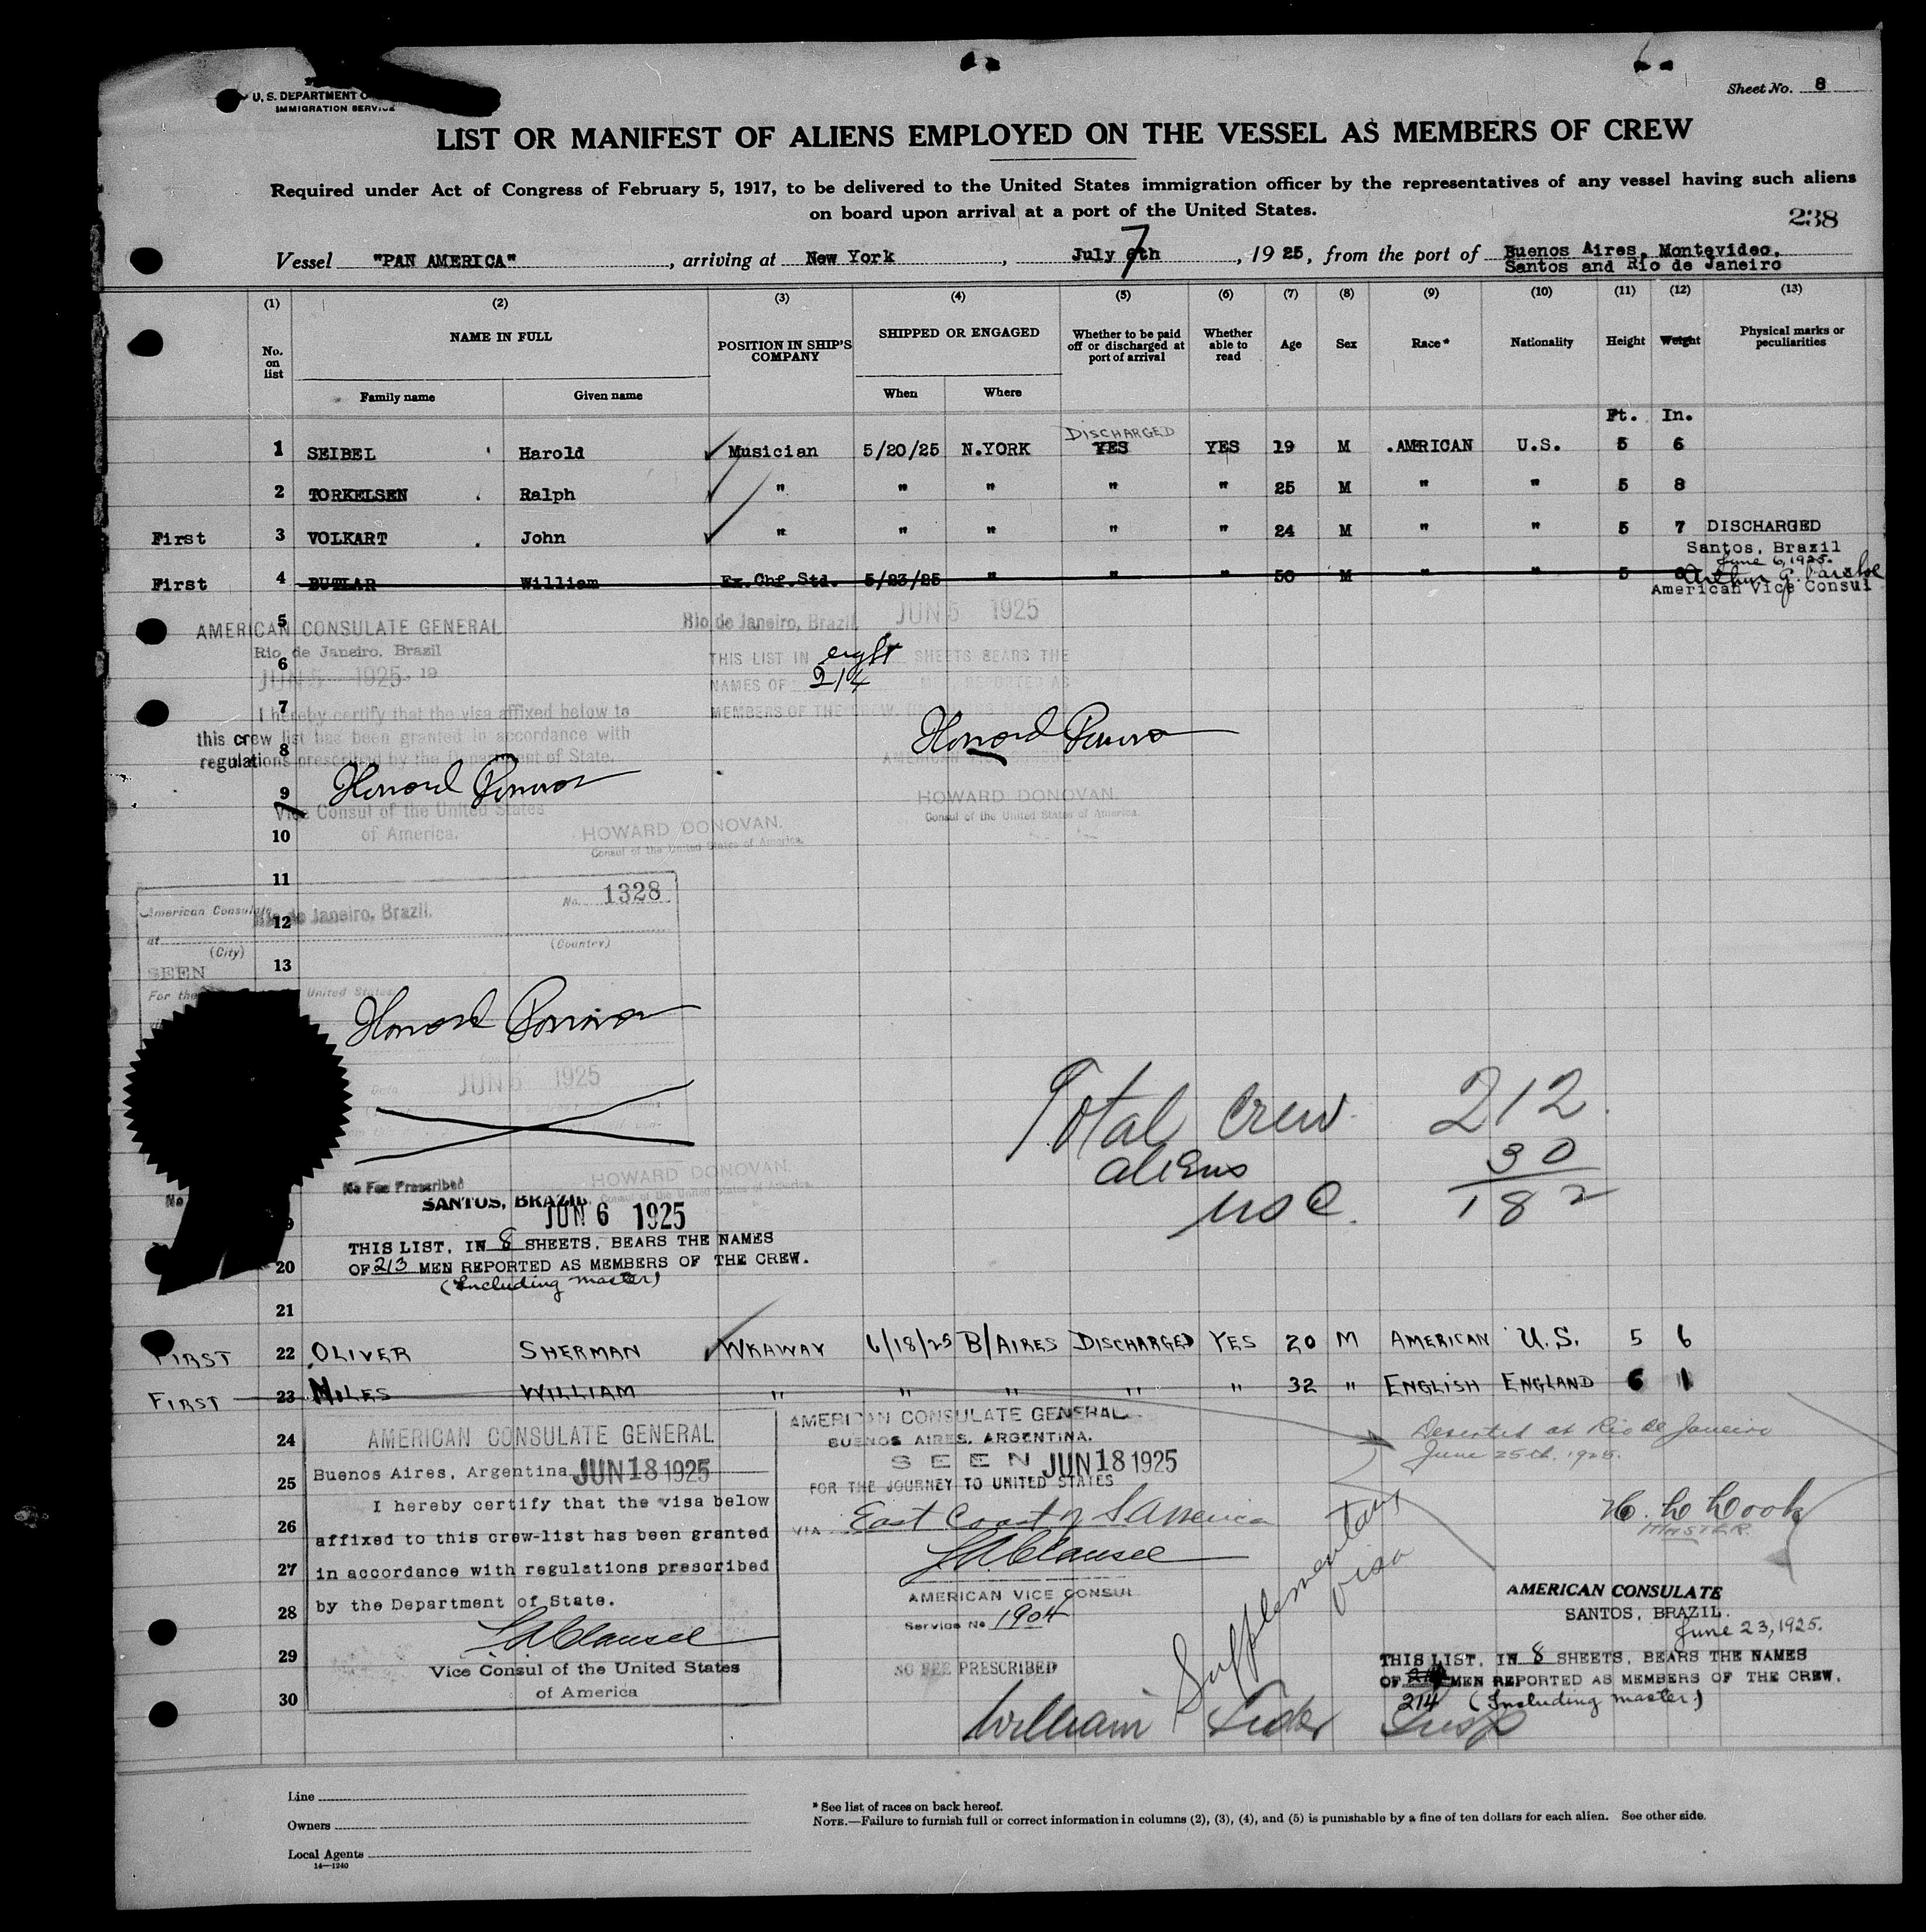 U. S. DEPARTMENT O
IMMIGRATION SERVICE
Sheet No. 8
LIST OR MANIFEST OF ALIENS EMPLOYED ON THE VESSEL AS MEMBERS OF CREW
Required under Act of Congress of February 5, 1917, to be delivered to the United States immigration officer by the representatives of any vessel having such aliens
on board upon arrival at a port of the United States.
238
Vessel "PAN AMERICA", arriving at New York, July 7 6th, 1925, from the port of Buenos Aires, Montevideo,
Santos and Rio de Janeiro
(1) (2) (3) (4) (5) (6) (7) (8) (9) (10) (11) (12) (13)
No. on list NAME IN FULL POSITION IN SHIP'S COMPANY SHIPPED OR ENGAGED Whether to be paid off or discharged at port of arrival Whether able to read Age Sex Race* Nationality Height Weight Physical marks or peculiarities
Family name Given name When Where
Ft. In.
DISCHARGED
1 SEIBEL Harold Musician 5/20/25 N.YORK YES YES 19 M .AMERICAN U.S. 5 6
2 TORKELSEN Ralph " " " " " 25 M " " 5 8
First 3 VOLKART John " " " " " 24 M " " 5 7 DISCHARGED
Santos, Brazil
June 6, 1925.
First 4 BUTLAR William Ex.Chf.Std. 5/23/25 " " " 50 M " " 5
American Vice Consul
5
AMERICAN CONSULATE GENERAL
Rio de Janeiro, Brazil
JUN 5 1925 19
I hereby certify that the visa affixed below to
this crew list has been granted in accordance with
regulations prescribed by the Department of State.
Howard Donovan
Vice Consul of the United States
of America.
HOWARD DONOVAN.
Consul of the United States of America.
Rio de Janeiro, Brazil JUN 5 1925
THIS LIST IN eight SHEETS BEARS THE
NAMES OF 214 MEN, REPORTED AS
MEMBERS OF THE CREW
Howard Donovan
HOWARD DONOVAN.
Consul of the United States of America.
6
7
8
9
10
11
12
13
No. 1328
American Consulate
Rio de Janeiro, Brazil.
at
(City) (Country)
SEEN
For the United States
Howard Donovan
Date JUN 5 1925
HOWARD DONOVAN.
Consul of the United States of America.
No Fee Prescribed
Total Crew 212
aliens 30
USC. 182
SANTOS, BRAZIL
JUN 6 1925
THIS LIST, IN 8 SHEETS, BEARS THE NAMES
OF 213 MEN REPORTED AS MEMBERS OF THE CREW.
(Including master)
20
21
FIRST 22 OLIVER SHERMAN WKAWAY 6/18/25 B/AIRES DISCHARGED YES 20 M AMERICAN U.S. 5 6
FIRST 23 NILES WILLIAM " " " " " 32 " ENGLISH ENGLAND 6 1
24
25
26
27
28
29
30
AMERICAN CONSULATE GENERAL
Buenos Aires, Argentina JUN 18 1925
I hereby certify that the visa below
affixed to this crew-list has been granted
in accordance with regulations prescribed
by the Department of State.
Vice Consul of the United States
of America
AMERICAN CONSULATE GENERAL
BUENOS AIRES, ARGENTINA.
SEEN JUN 18 1925
FOR THE JOURNEY TO UNITED STATES
VIA East Coast of S America
AMERICAN VICE CONSUL
Service No 1904
NO FEE PRESCRIBED
Supplementary
visa
Deserted at Rio de Janeiro
June 25th, 1925.
MASTER
AMERICAN CONSULATE
SANTOS, BRAZIL.
June 23, 1925.
THIS LIST, IN 8 SHEETS, BEARS THE NAMES
OF MEN REPORTED AS MEMBERS OF THE CREW.
214 (Including master)
William Insp
Line
Owners
Local Agents
14—1240
* See list of races on back hereof.
NOTE.—Failure to furnish full or correct information in columns (2), (3), (4), and (5) is punishable by a fine of ten dollars for each alien. See other side.